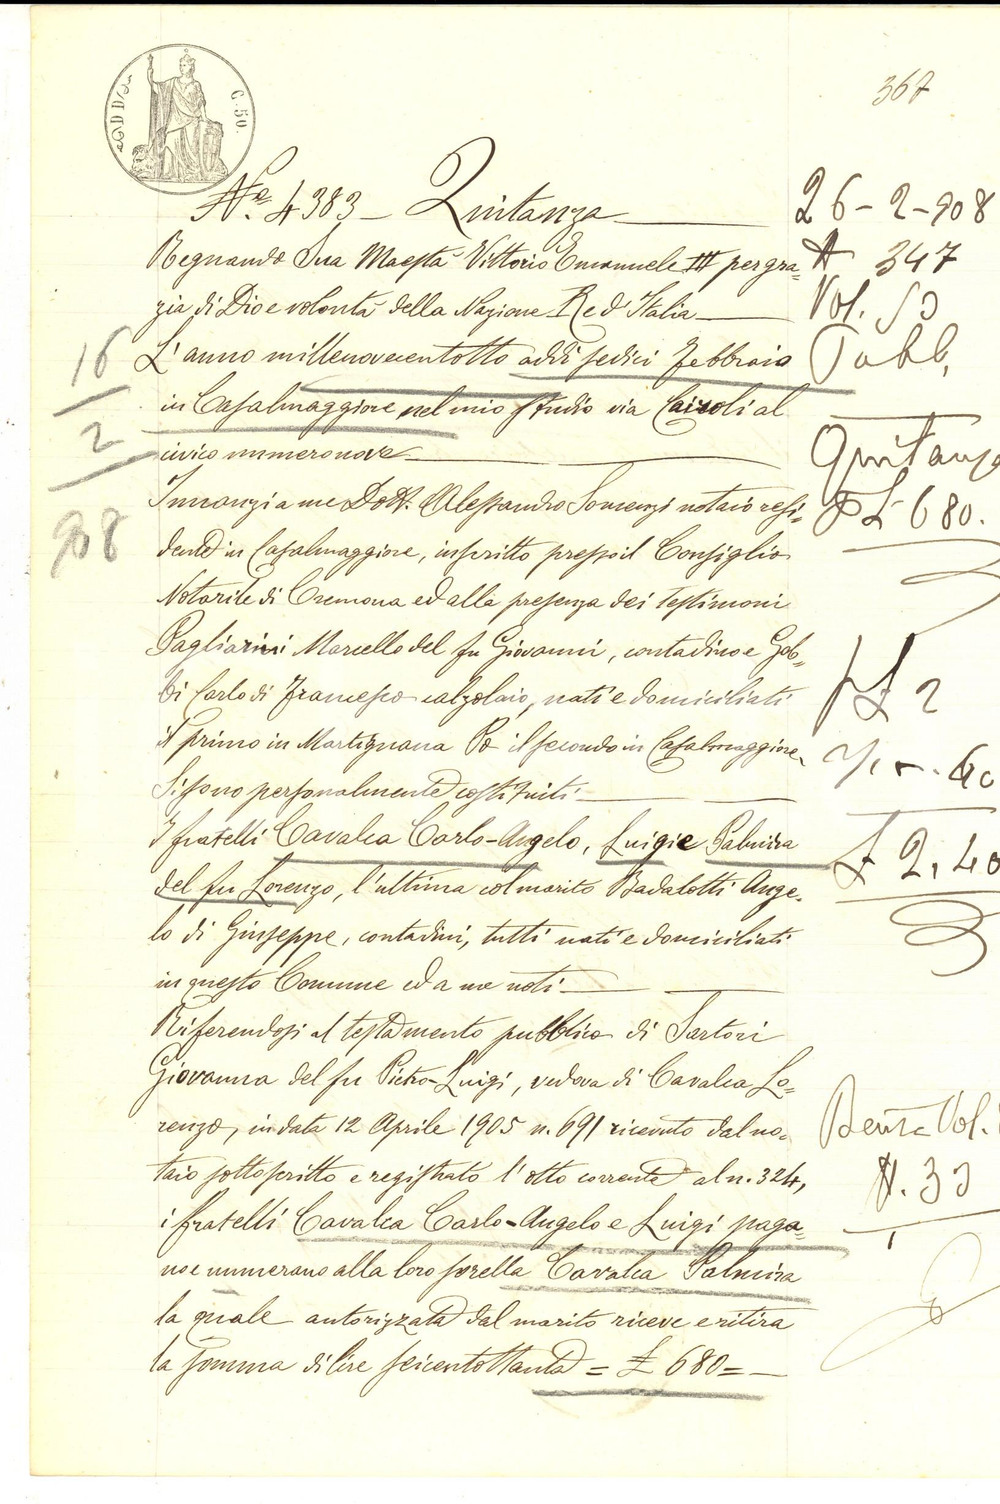 367
C. 50.
N.º 4383 - Quitanza
Regnando Sua Maestà Vittorio Emanuele III per gra-
zia di Dio e volontà della Nazione Re d'Italia
L'anno millenovecentotto addì sedici Febbraio
in Casalmaggiore nel mio studio via Cairoli al
civico numero nove
Innanzi a me Dott. Alessandro Somenzi notaio resi-
dente in Casalmaggiore, inscritto presso il Consiglio
Notarile di Cremona ed alla presenza dei testimoni
Pagliarini Marcello del fu Giovanni, contadino e Gob-
bi Carlo di Francesco calzolaio, nati e domiciliati
il primo in Martignana Po il secondo in Casalmaggiore
Si sono personalmente costituiti
I fratelli Cavalca Carlo-Angelo, Luigi e Palmira
del fu Lorenzo, l'ultima col marito Badalotti Ange-
lo di Giuseppe, contadini, tutti nati e domiciliati
in questo Comune ed a me noti
Riferendosi al testamento pubblico di Sartori
Giovanna del fu Pietro-Luigi, vedova di Cavalca Lo-
renzo, in data 12 Aprile 1905 n. 691 ricevuto dal no-
taio sottoscritto e registrato l'otto corrente al n. 324,
i fratelli Cavalca Carlo-Angelo e Luigi paga-
no e numerano alla loro sorella Cavalca Palmira
la quale autorizzata dal marito riceve e ritira
la somma di lire seicentottanta = £ 680 =
16
2
908
26-2-908
N 347
Vol. 53
Fabb.
Quitanza
£ 680.
£ 2
60
£ 2.40
Vol.
N. 33